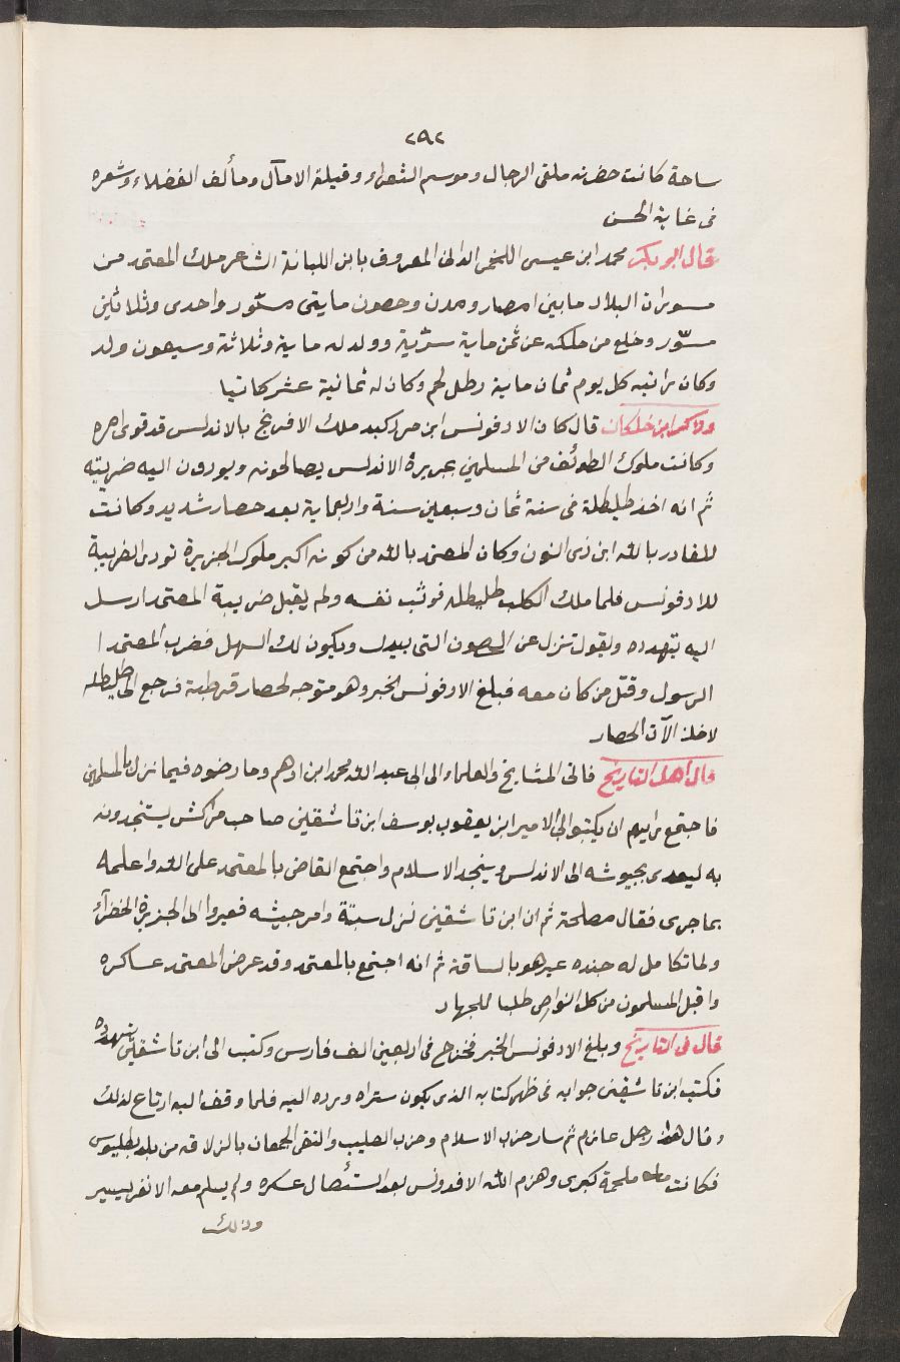 ٢٩٢
ساحة كانت حضرته ملقى الرجال وموسم الشعراء وقبلة الامآل ومألف الفضلاء وشعره
فى غاية الحسن
قال ابو بكر محمد ابن عيسى اللخمى الدانى المعروف بابن اللبانة الشاعر ملك المعتمد من
مسورات البلاد مابين امصار ومدن وحصون مايتى مسّور واحدى وثلاثين
مسّور وخلع من ملكه عن ثمن ماية سرّية وولد له ماية وثلاثة وسبعون ولد
وكان راتبه كل يوم ثمان ماية رطل لحم وكان له ثمانية عشر كاتبا
وذكر ابن خلكان قال كان الادفونس ابن فردلند ملك الافرنج بالاندلس قد قوى امره
وكانت ملوك الطوئف من المسلمين بجزيرة الاندلس يصالحونه ويودون اليه ضريبته
ثم انه اخذ طليطلة فى سنة ثمان وسبعين سنة واربعماية بعد حصار شديد وكانت
للقادر بالله ابن ذى النون وكان المعتمد بالله من كونه اكبر ملوك الجزيرة تودى الضريبة
للادفونس فلما ملك الكلب طليطله نفسه ولم يقبل ضريبة المعتمد ارسل
اليه يتهدده ويقول تنزل عن الحصون التى بيدك ويكون لك السهل فضرب المعتمد ا
الرسول وقتل من كان معه فبلغ الادفونس الخبر وهو متوجه لحصار قرطبة فرجع الى طليطله
لاخذ الآت الحصار
قال اهل التاريخ فاتى المشايخ والعلماء الى ابى عبد الله محمد ابن ادهم وما رضوه فيما نزل بالمسلمين
فاجتمع رايهم ان يكتبوا الى الامير ابن يعقوب يوسف ابن تاشقين صاحب مراكش يستنجدونه
به ليعدى بجيوشه الى الاندلس وينجد الاسلام واجتمع القاضى بالمعتمد على الله واعلمه
بما جرى فقال مصلحة ثم ان ابن تاشقين نزل سبتة وامر جيشه فعبروا الى الجزيرة الخضرآء
ولما تكامل له جنده عبر هو بالساقة ثم انه اجتمع بالمعتمد وقد عرض المعتمد عساكره
واقبل المسلمون من كل النواحى طلبا للجهاد
قال فى التاريخ وبلغ الادفونس الخبر فخرج فى اربعين الف فارس وكتب الى ابن تاشقين يتهدده
فكتب ابن تاشقين جوابه فى ظهر كتابه الذى يكون ستراه ورده اليه فلما وقف اليه ارتاع لذلك
وقال هذا رجل عازم ثم سار حزب الاسلام وحزب الصليب والتقى الجمعان بالزلاقه من بلد بطليوس
فكانت ملحمة كبرى وهزم الله الافدونس بعد استئصال عسكره ولم يسلم معه الا نفر يسير
وذلك